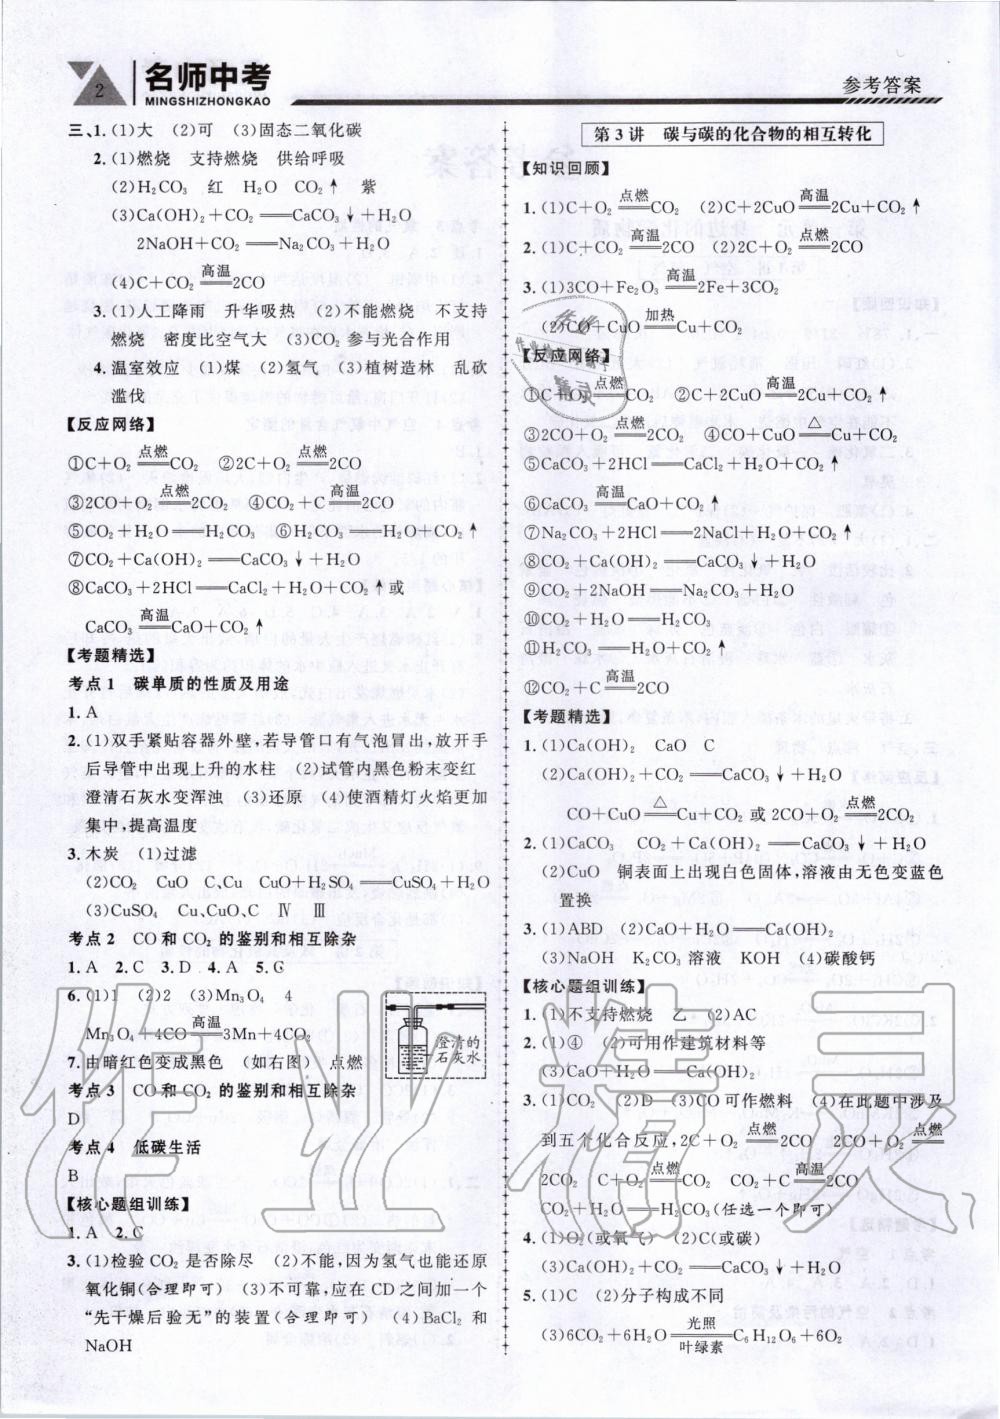 2
名师中考
MINGSHIZHONGKAO
参考答案
三、1.(1)大 (2)可 (3)固态二氧化碳
2.(1)燃烧 支持燃烧 供给呼吸
(2)H₂CO₃ 红 H₂O CO₂↑ 紫
(3)Ca(OH)₂+CO₂══CaCO₃↓+H₂O
2NaOH+CO₂══Na₂CO₃+H₂O
(4)C+CO₂══高温══2CO
3.(1)人工降雨 升华吸热 (2)不能燃烧 不支持
燃烧 密度比空气大 (3)CO₂参与光合作用
4.温室效应 (1)煤 (2)氢气 (3)植树造林 乱砍
滥伐
【反应网络】
①C+O₂══点燃══CO₂ ②2C+O₂══点燃══2CO
③2CO+O₂══点燃══2CO₂ ④CO₂+C══高温══2CO
⑤CO₂+H₂O══H₂CO₃ ⑥H₂CO₃══H₂O+CO₂↑
⑦CO₂+Ca(OH)₂══CaCO₃↓+H₂O
⑧CaCO₃+2HCl══CaCl₂+H₂O+CO₂↑或
CaCO₃══高温══CaO+CO₂↑
【考题精选】
考点1 碳单质的性质及用途
1.A
2.(1)双手紧贴容器外壁,若导管口有气泡冒出,放开手
后导管中出现上升的水柱 (2)试管中黑色粉末变红
澄清石灰水变浑浊 (3)还原 (4)使酒精灯火焰更加
集中,提高温度
3.木炭 (1)过滤
(2)CO₂ CuO C、Cu CuO+H₂SO₄══CuSO₄+H₂O
(3)CuSO₄ Cu、CuO、C Ⅳ Ⅲ
考点2 CO和CO₂的鉴别和相互除杂
1.A 2.C 3.D 4.A 5.C
6.(1)1 (2)2 (3)Mn₃O₄ 4
Mn₃O₄+4CO══高温══3Mn+4CO₂
7.由暗红色变成黑色 (如右图) 点燃
澄清的
石灰水
考点3 CO和CO₂的鉴别和相互除杂
D
考点4 低碳生活
B
【核心题组训练】
1.A 2.C
3.(1)检验CO₂是否除尽 (2)不能,因为氢气也能还原
氧化铜(合理即可) (3)不可靠,应在CD之间加一个
“先干燥后验无”的装置(合理即可) (4)BaCl₂和
NaOH
第3讲 碳与碳的化合物的相互转化
【知识回顾】
1.(1)C+O₂══点燃══CO₂ (2)C+2CuO══高温══2Cu+CO₂↑
2.(1)C+CO₂══高温══2CO (2)2C+O₂══点燃══2CO
3.(1)3CO+Fe₂O₃══高温══2Fe+3CO₂
(2)CO+CuO══加热══Cu+CO₂
【反应网络】
①C+O₂══点燃══CO₂ ②C+2CuO══高温══2Cu+CO₂↑
③2CO+O₂══点燃══2CO₂ ④CO+CuO══△══Cu+CO₂
⑤CaCO₃+2HCl══CaCl₂+H₂O+CO₂↑
⑥CaCO₃══高温══CaO+CO₂↑
⑦Na₂CO₃+2HCl══2NaCl+H₂O+CO₂↑
⑧CO₂+Ca(OH)₂══CaCO₃↓+H₂O
⑨CO₂+2NaOH══Na₂CO₃+H₂O
⑩CO₂+H₂O══H₂CO₃
⑪H₂CO₃══H₂O+CO₂↑
⑫CO₂+C══高温══2CO
【考题精选】
1.(1)Ca(OH)₂ CaO C
(2)Ca(OH)₂+CO₂══CaCO₃↓+H₂O
CO+CuO══△══Cu+CO₂或2CO+O₂══点燃══2CO₂
2.(1)CaCO₃ CO₂+Ca(OH)₂══CaCO₃↓+H₂O
(2)CuO 铜表面上出现白色固体,溶液由无色变蓝色
置换
3.(1)ABD (2)CaO+H₂O══Ca(OH)₂
(3)NaOH K₂CO₃溶液 KOH (4)碳酸钙
【核心题组训练】
1.(1)不支持燃烧 乙 (2)AC
2.(1)④ (2)可用作建筑材料等
(3)CaO+H₂O══Ca(OH)₂
3.(1)CO₂ (2)D (3)CO可作燃料 (4)在此题中涉及
到五个化合反应,2C+O₂══点燃══2CO 2CO+O₂══点燃══
2CO₂ C+O₂══点燃══CO₂ CO₂+C══高温══2CO
CO₂+H₂O══H₂CO₃(任选一个即可)
4.(1)O₂(或氧气) (2)C(或碳)
(3)Ca(OH)₂+CO₂══CaCO₃↓+H₂O
5.(1)C (2)分子构成不同
(3)6CO₂+6H₂O══光照/叶绿素══C₆H₁₂O₆+6O₂
作业精灵